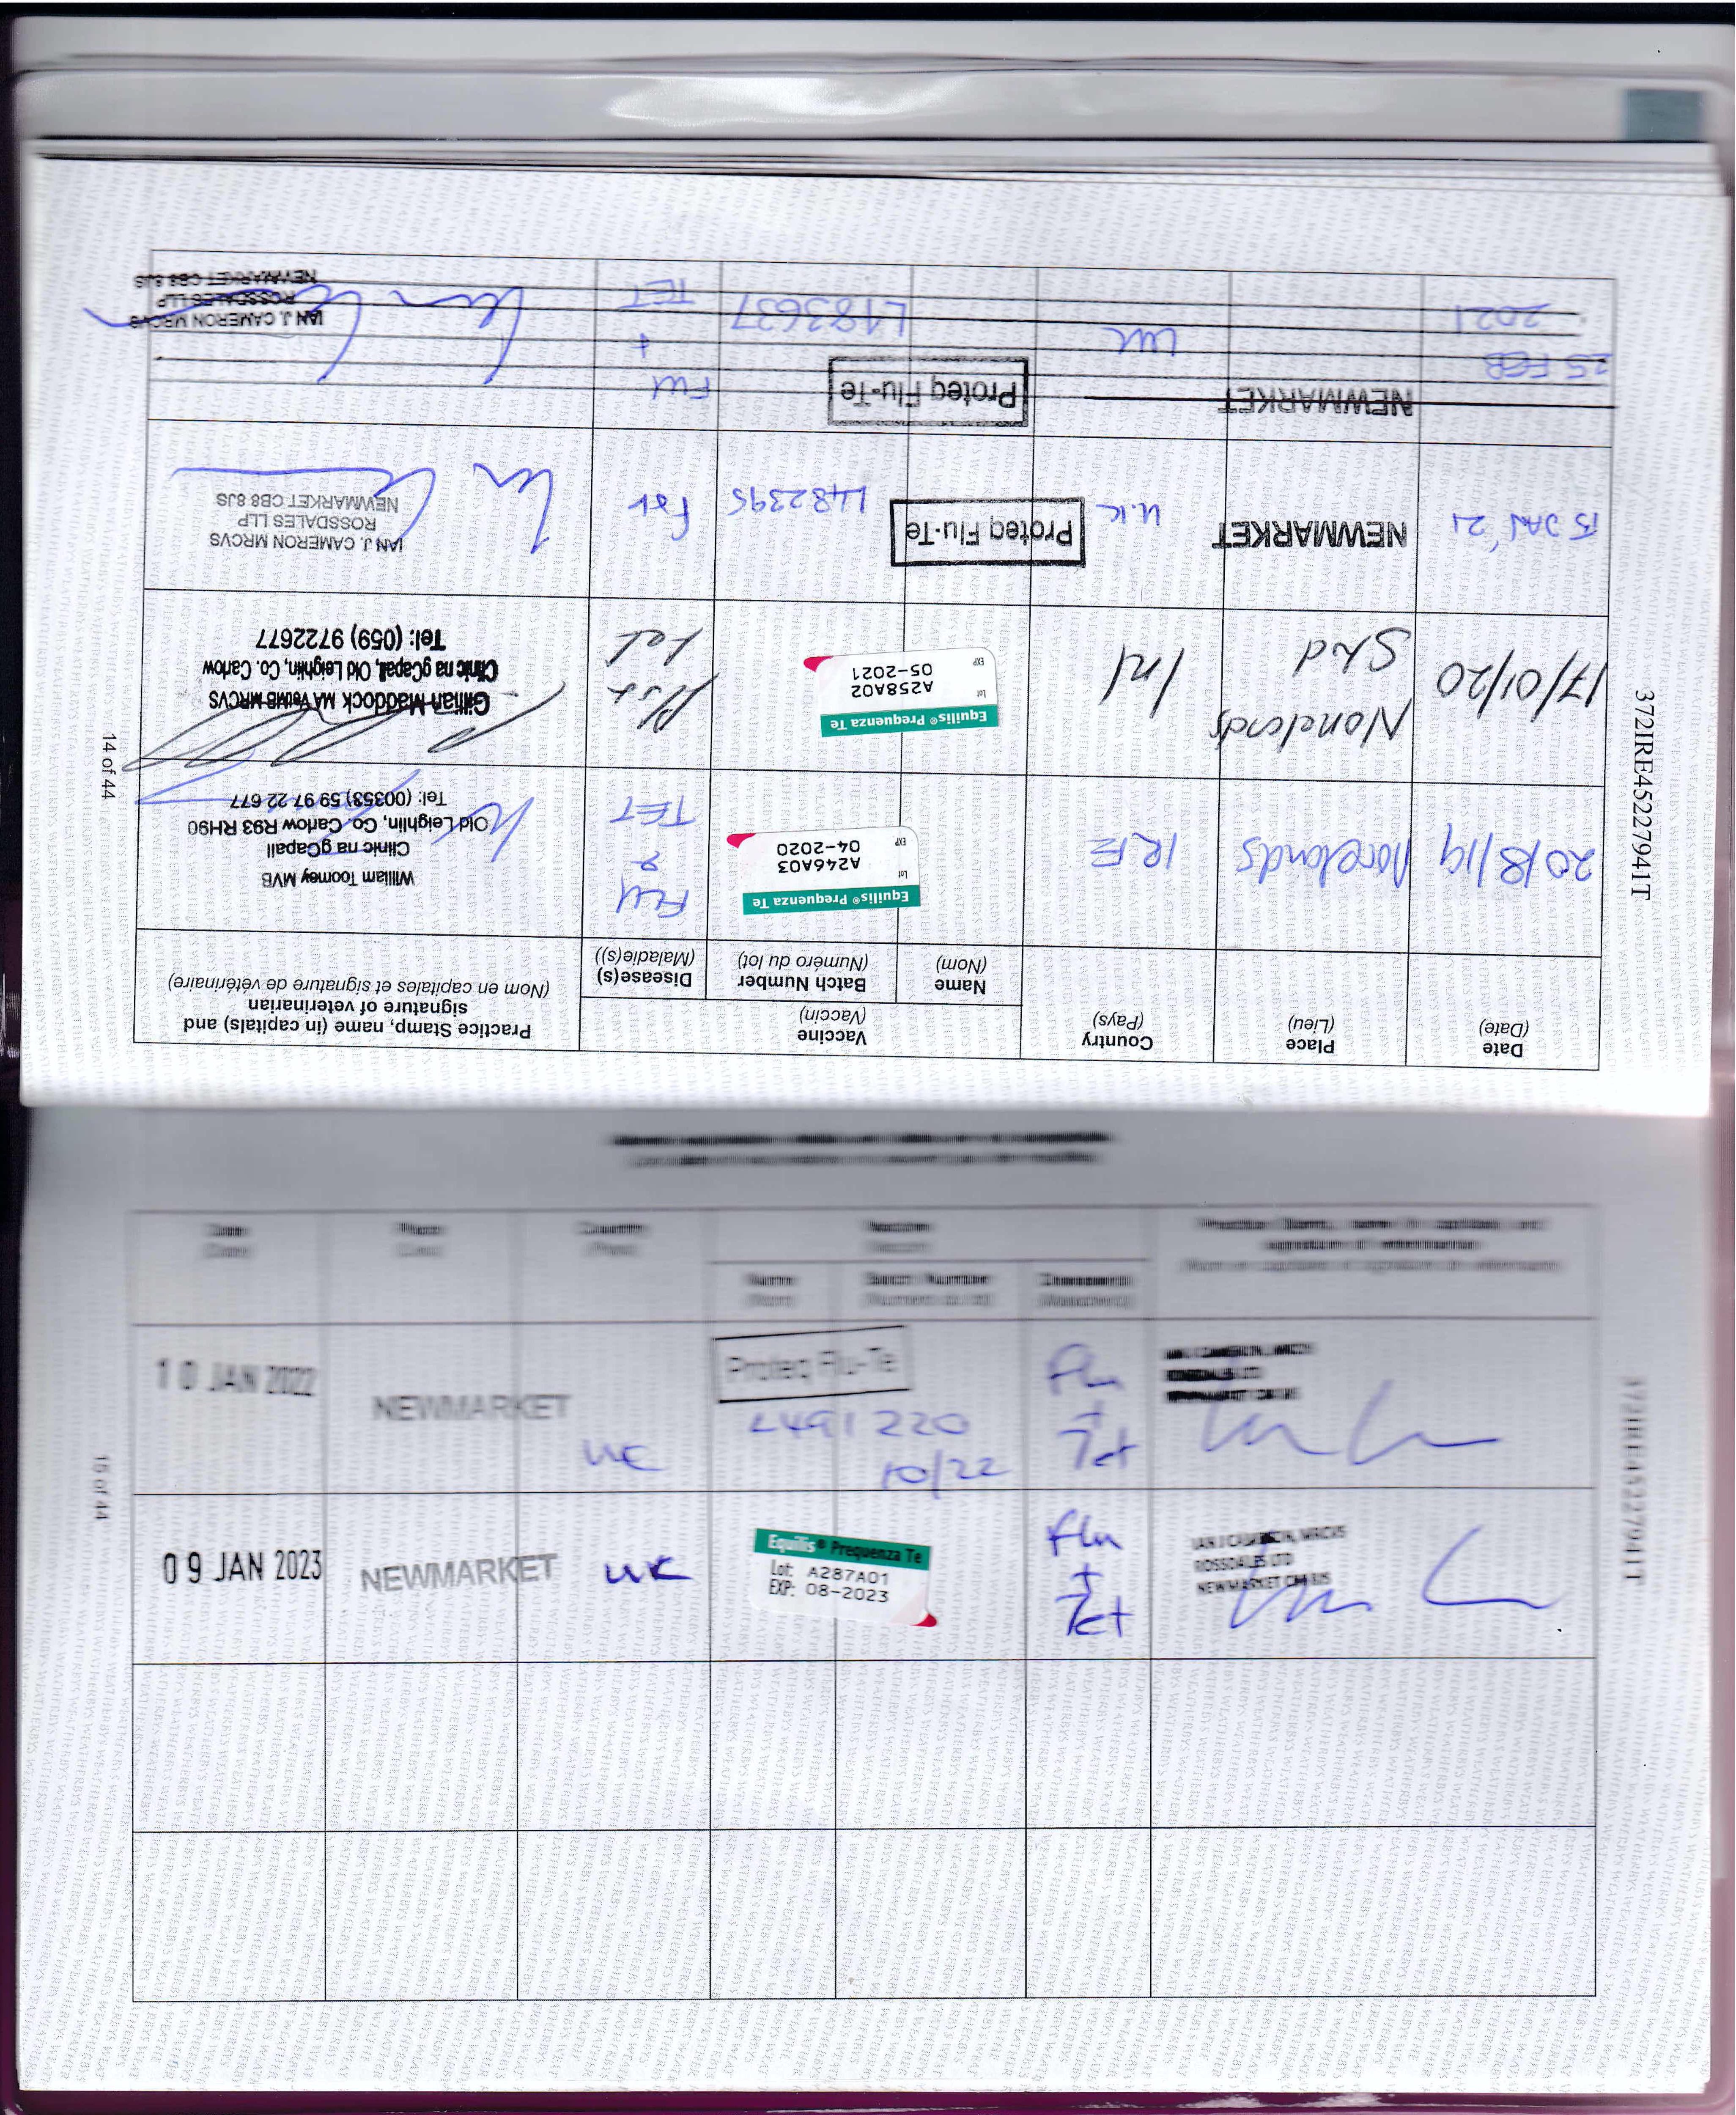 372IRE45227941T
14 of 44
Date
(Date)
Place
(Lieu)
Country
(Pays)
Vaccine
(Vaccin)
Name
(Nom)
Batch Number
(Numéro du lot)
Disease(s)
(Maladie(s))
Practice Stamp, name (in capitals) and
signature of veterinarian
(Nom en capitales et signature de vétérinaire)
20/8/19
IRE
Equilis® Prequenza Te
Lot
A246A03
EXP
04-2020
FLU
&
TET
William Toomey MVB
Clinic na gCapall
Old Leighlin, Co. Carlow R93 RH90
Tel: (00353) 59 97 22 677
17/01/20
Stud
Irl
Equilis® Prequenza Te
Lot
A258A02
EXP
05-2021
Tet
Gillian Maddock MA VetMB MRCVS
Clinic na gCapall, Old Leighlin, Co. Carlow
Tel: (059) 9722677
JAN '21
NEWMARKET
U.K
Proteq Flu-Te
L482395
IAN J. CAMERON MRCVS
ROSSDALES LLP
NEWMARKET CB8 8JS
25 FEB
2021
NEWMARKET
UK
Proteq Flu-Te
L483637
FLU
+
TET
IAN J. CAMERON MRCVS
ROSSDALES LLP
NEWMARKET CB8 8JS
15 of 44
Date
(Date)
Place
(Lieu)
Country
(Pays)
Vaccine
(Vaccin)
Name
(Nom)
Batch Number
(Numéro du lot)
Disease(s)
(Maladie(s))
Practice Stamp, name (in capitals) and
signature of veterinarian
(Nom en capitales et signature de vétérinaire)
10 JAN 2022
NEWMARKET
UK
Proteq Flu-Te
L491220
10/22
Flu
+
Tet
09 JAN 2023
NEWMARKET
UK
Equilis® Prequenza Te
Lot: A287A01
EXP: 08-2023
Flu
+
Tet
IAN J CAMERON, MRCVS
ROSSDALES LTD
NEWMARKET CB8 8JS
372IRE45227941T